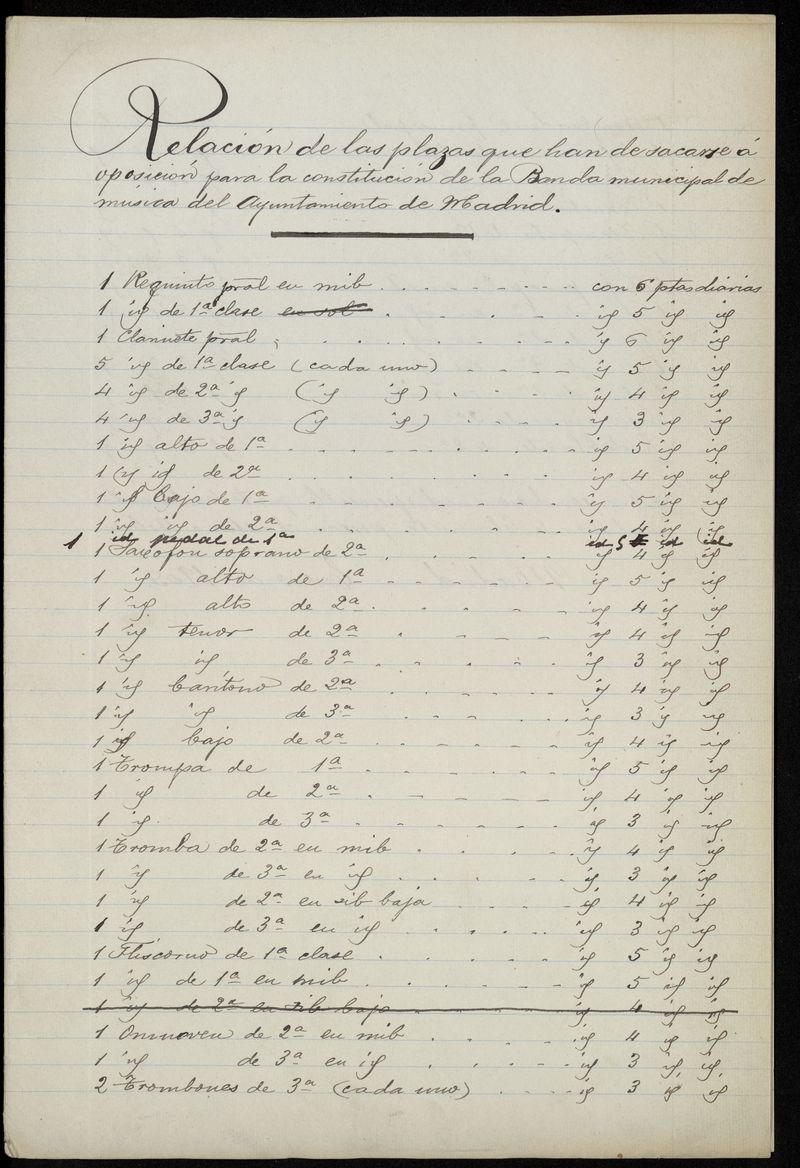 Relación de las plazas que han de sacarse á
oposición para la constitución de la Banda municipal de
música del Ayuntamiento de Madrid.
1 Requinto pral en mib . . . . . . . . con 6 ptas diarias
1 id de 1ª clase en sol . . . . . id 5 id id
1 Clarinete pral . . . . . . . . . id 6 id id
5 id de 1ª clase (cada uno) . . . . id 5 id id
4 id de 2ª id (id id) . . . . id 4 id id
4 id de 3ª id (id id) . . . . id 3 id id
1 id alto de 1ª . . . . . . . . . id 5 id id
1 id id de 2ª . . . . . . . . id 4 id id
1 id bajo de 1ª . . . . . . . . id 5 id id
1 id id de 2ª . . . . . . . . id 4 id id
1 id pedal de 1ª id 5 id id
1 Saxofon soprano de 2ª . . . . . id 4 id id
1 id alto de 1ª . . . . . . id 5 id id
1 id alto de 2ª . . . . . . id 4 id id
1 id tenor de 2ª . . . . . id 4 id id
1 id id de 3ª . . . . . id 3 id id
1 id baritono de 2ª . . . . . id 4 id id
1 id id de 3ª . . . . . id 3 id id
1 id bajo de 2ª . . . . . . id 4 id id
1 Trompa de 1ª . . . . . . id 5 id id
1 id de 2ª . . . . . id 4 id id
1 id de 3ª . . . . . . id 3 id id
1 Tromba de 2ª en mib . . . . . id 4 id id
1 id de 3ª en id . . . . . id 3 id id
1 id de 2ª en sib baja . . . . id 4 id id
1 id de 3ª en id . . . . . id 3 id id
1 Fliscorno de 1ª clase . . . . . id 5 id id
1 id de 1ª en mib . . . . . . id 5 id id
1 id de 2ª en sib bajo . . . . . id 4 id id
1 Onnoven de 2ª en mib . . . . id 4 id id
1 id de 3ª en id . . . . . id 3 id, id,
2 Trombones de 3ª (cada uno) . . . . id 3 id id